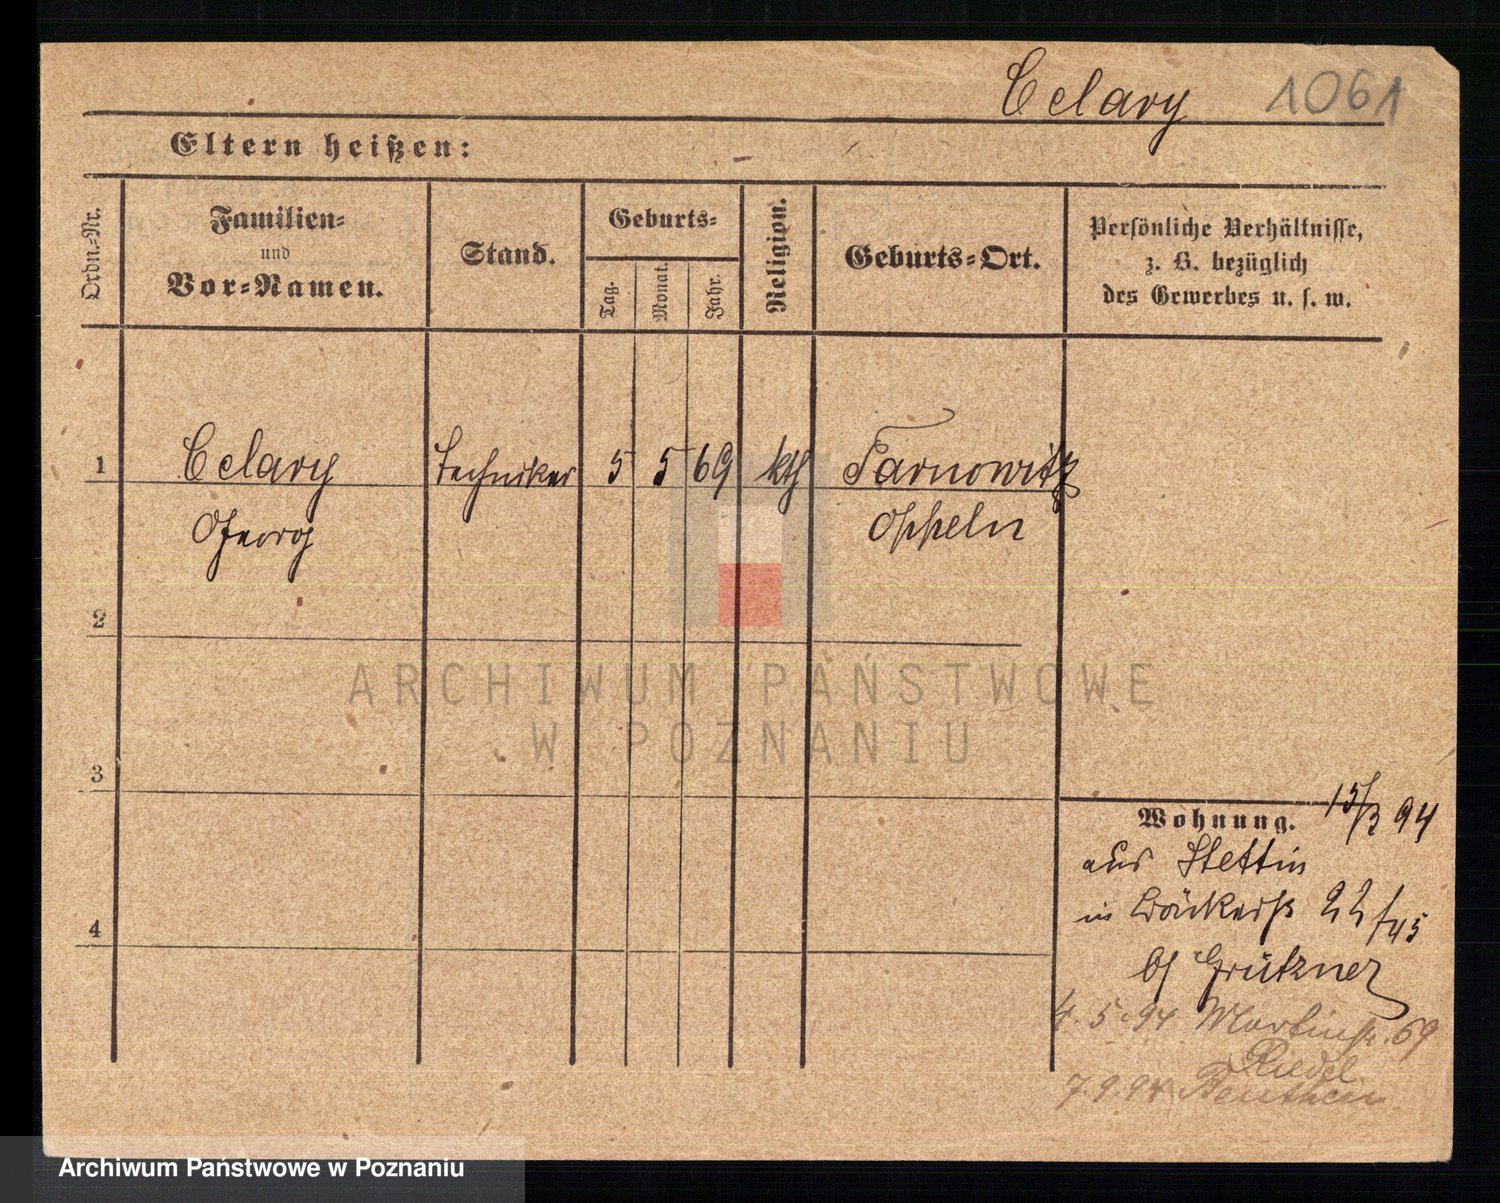 Celary 1061
Eltern heißen:
Ordn.=Nr.
Familien=
und
Vor=Namen.
Stand.
Geburts=
Tag.
Monat.
Jahr.
Religion.
Geburts=Ort.
Persönliche Verhältnisse,
z. B. bezüglich
des Gewerbes u. s. w.
1 Celary Techniker 5 5 69 kth Tarnowitz
Georg Oppeln
2
3
4
Wohnung. 15/3 94
aus Stettin
in Bäckerst 22/45
bf Grützner
4.5.94 Martinstr. 69
Riedel
7.9.94 Beuthen
ARCHIWUM PAŃSTWOWE
W POZNANIU
Archiwum Państwowe w Poznaniu